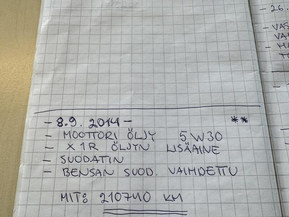 - 8.9. 2014 - **
- MOOTTORI ÖLJY 5W30
- X1R ÖLJYN LISÄAINE
- SUODATIN
- BENSAN SUOD. VAIHDETTU
MIT: 210740 KM
- 26.
- VAS